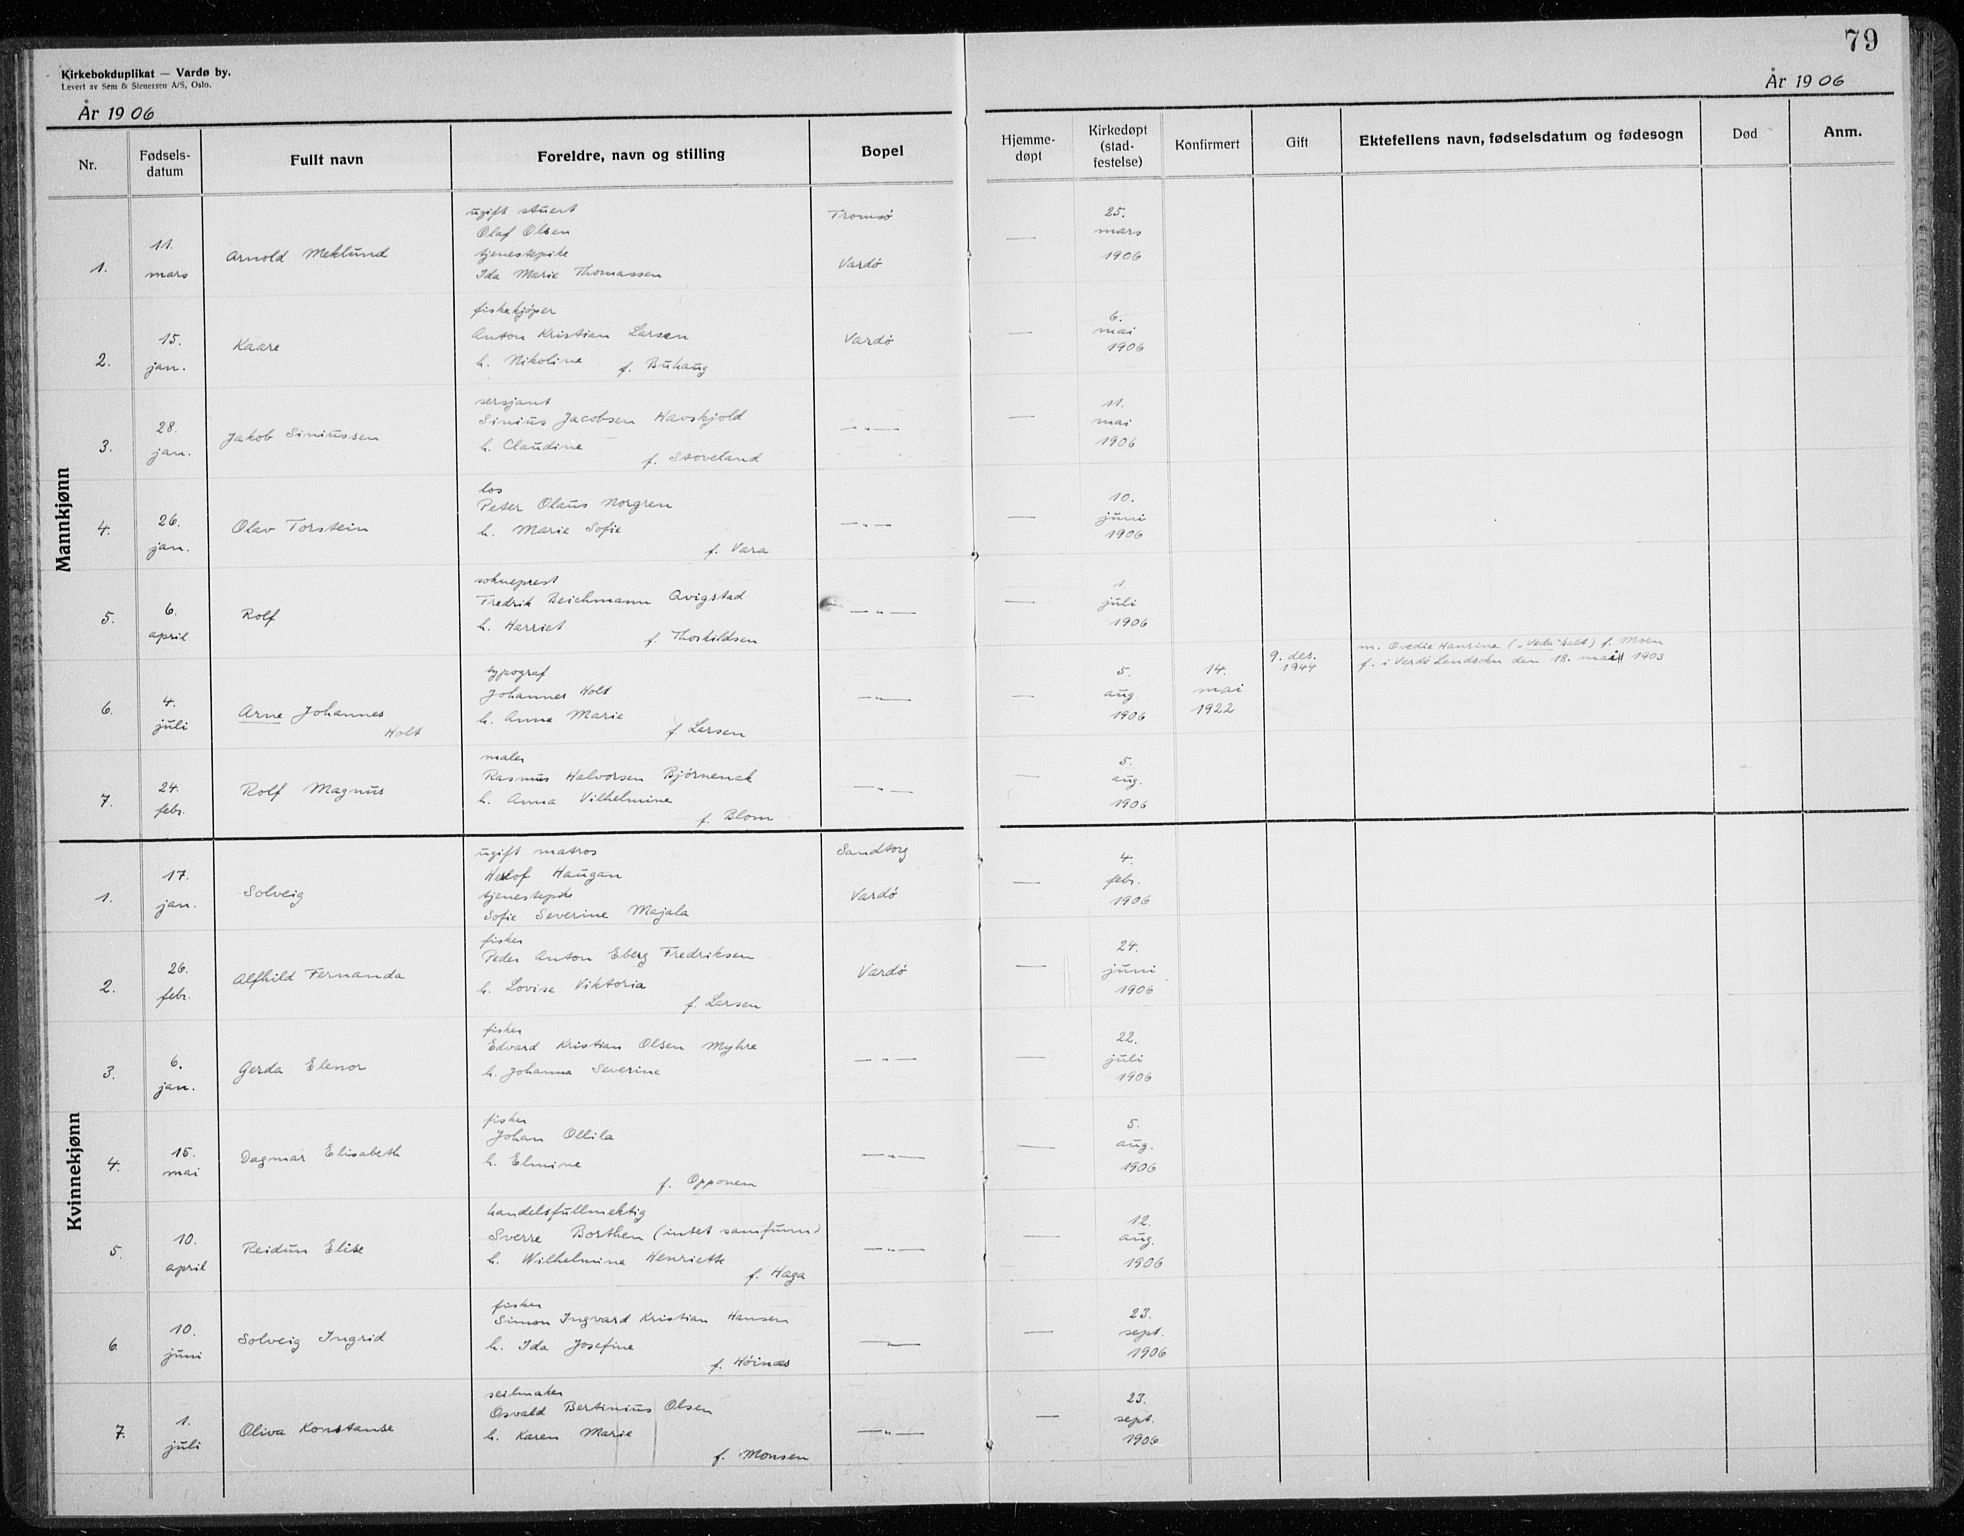 79
Kirkebokduplikat — Vardø by.
Levert av Sem & Stenersen A/S, Oslo.
År 1906
År 1906
Nr.
Fødsels-
datum
Fullt navn
Foreldre, navn og stilling
Bopel
Hjemme-
døpt
Kirkedøpt
(stad-
festelse)
Konfirmert
Gift
Ektefellens navn, fødselsdatum og fødesogn
Død
Anm.
Mannkjønn
1.
11.
mars
Arnold Meklund
ugift stuert
Olaf Olsen
tjenestepike
Ida Marie Thomassen
Tromsø
Vardø
—
25.
mars
1906
2.
15.
jan.
Kaare
fiskekjøper
Anton Kristian Larsen
h. Nikoline
f. Buhaug
Vardø
—
6.
mai
1906
3.
28.
jan.
Jakob Siniussen
sersjant
Sinius Jacobsen Havskjold
h. Claudine
f. Stoveland
— „ —
—
11.
mai
1906
4.
26.
jan.
Olav Torstein
los
Peter Olaus Norgren
h. Marie Sofie
f. Vara
— „ —
—
10.
juni
1906
5.
6.
april
Rolf
sokneprest
Fredrik Beichmann Qvigstad
h. Harriet
f. Thorkildsen
— „ —
—
1.
juli
1906
6.
4.
juli
Arne Johannes
Holt
typograf
Johannes Holt
h. Anna Marie
f. Larsen
— „ —
—
5.
aug.
1906
14.
mai
1922
9. des.
1944
m. Ovedia Hansine f. Moen
f. i Vardø Landsokn den 18. mai 1903
7.
24.
febr.
Rolf Magnus
maler
Rasmus Halvorsen Bjørnenak
h. Anna Vilhelmine
f. Blom
— „ —
—
5.
aug.
1906
Kvinnekjønn
1.
17.
jan.
Solveig
ugift matros
Haugan
tjenestepike
Sofie Severine Majala
Sandtorg
Vardø
—
4.
febr.
1906
2.
26.
febr.
Alfhild Fernanda
fisker
Peder Anton Eberg Fredriksen
h. Lovise Viktoria
f. Larsen
Vardø
—
24.
juni
1906
3.
6.
jan.
Gerda Elenor
fisker
Edvard Kristian Olsen Myhre
h. Johanna Severine
— „ —
—
22.
juli
1906
4.
15.
mai
Dagmar Elisabeth
fisker
Johan Ollila
h. Elmine
f. Opponen
— „ —
—
5.
aug.
1906
5.
10.
april
Reidun Elise
handelsfullmektig
Sverre Borthen (intet samfunn)
h. Wilhelmine Henriette
f. Haga
— „ —
—
12.
aug.
1906
6.
10.
juni
Solveig Ingrid
fisker
Simon Ingvard Kristian Hansen
h. Ida Josefine
f. Höinæs
— „ —
—
23.
sept.
1906
7.
1.
juli
Oliva Konstanse
seilmaker
Osvald Bertinius Olsen
h. Karen Marie
f. Monsen
— „ —
—
23.
sept.
1906